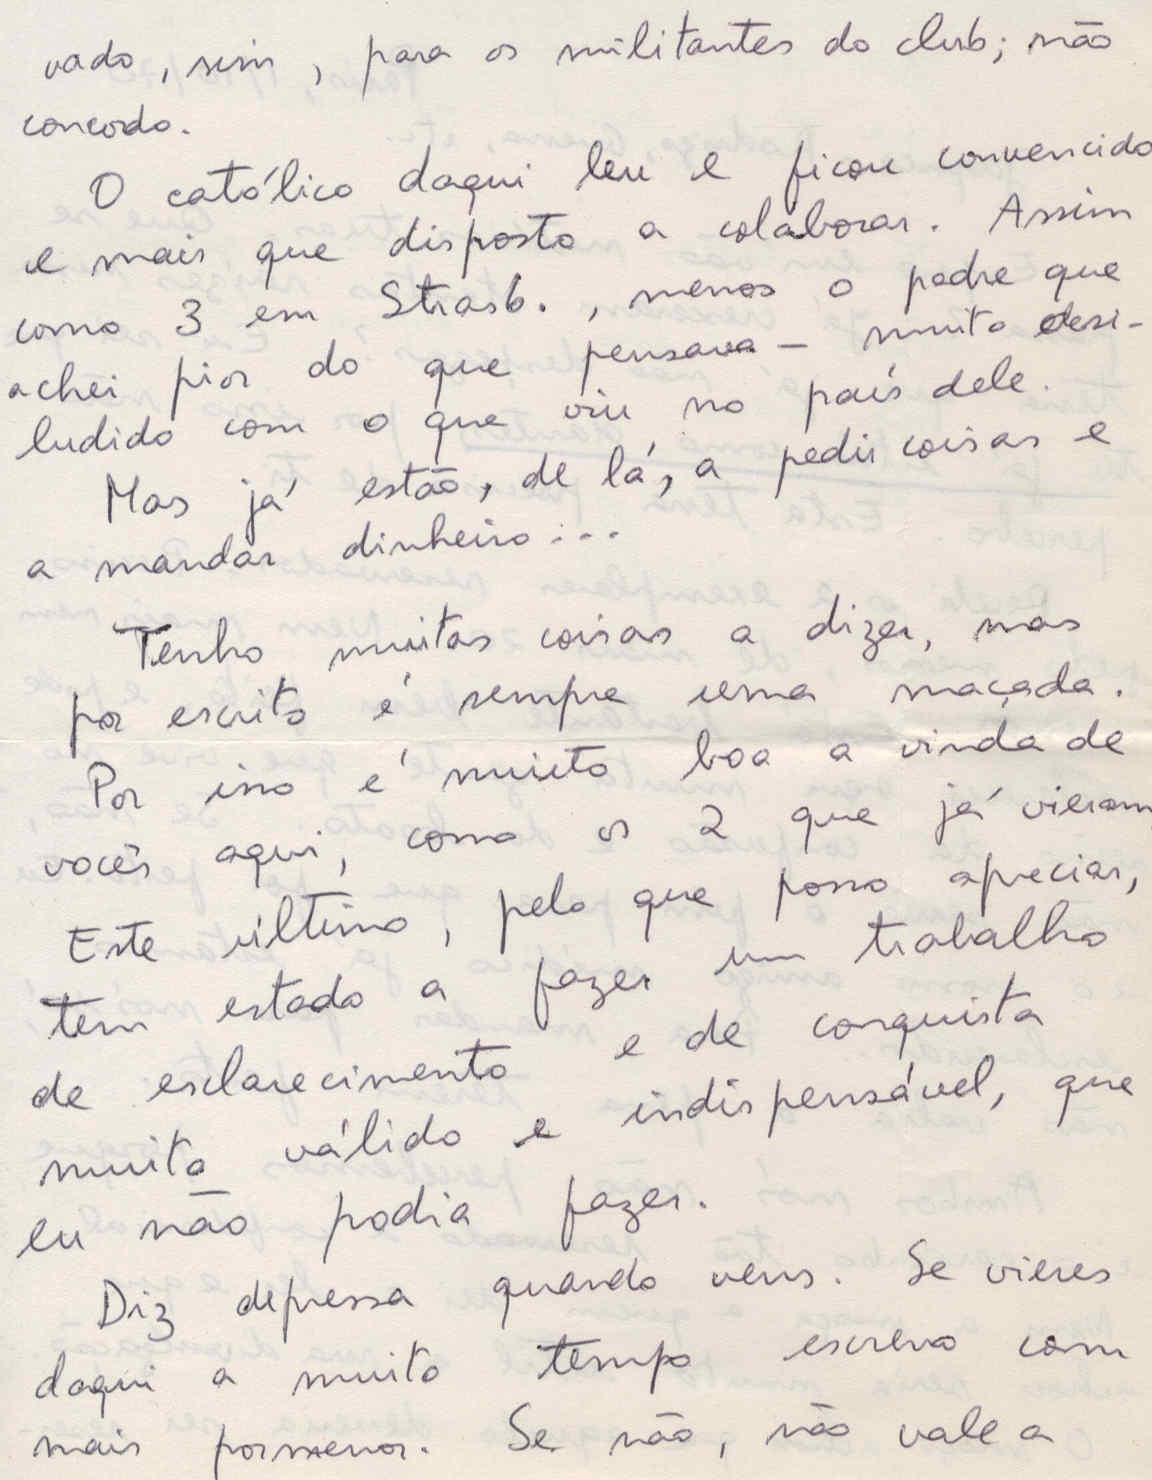 vado, sim, para os militantes do club; não
concordo.
O católico daqui leu e ficou convencido
e mais que disposto a colaborar. Assim
como 3 em Strasb., menos o padre que
achei pior do que pensava – muito desi-
ludido com o que viu no país dele.
Mas já estão, de lá, a pedir coisas e
a mandar dinheiro...
Tenho muitas coisas a dizer, mas
por escrito é sempre uma maçada.
Por isso é muito boa a vinda de
vocês aqui, como os 2 que já vieram
Este último, pelo que posso apreciar,
tem estado a fazer um trabalho
de esclarecimento e de conquista
muito válido e indispensável, que
eu não podia fazer.
Diz depressa quando vens. Se vieres
daqui a muito tempo escrevo com
mais pormenor. Se não, não vale a